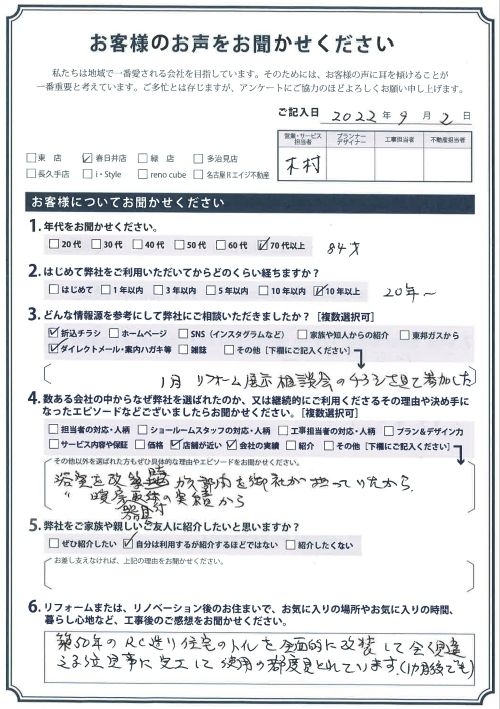 お客様のお声をお聞かせください
私たちは地域で一番愛される会社を目指しています。そのためには、お客様の声に耳を傾けることが
一番重要と考えています。ご多忙とは存じますが、アンケートにご協力のほどよろしくお願い申し上げます。
ご記入日 2022年9月2日
営業・サービス担当者 プランナーデザイナー 工事担当者 不動産担当者
木村
□東 店 ☑春日井店 □緑 店 □多治見店
□長久手店 □i・Style □reno cube □名古屋Rエイジ不動産
お客様についてお聞かせください
1.年代をお聞かせください。
□20代 □30代 □40代 □50代 □60代 ☑70代以上 84才
2.はじめて弊社をご利用いただいてからどのくらい経ちますか？
□はじめて □1年以内 □3年以内 □5年以内 □10年以内 ☑10年以上 20年～
3.どんな情報源を参考にして弊社にご相談いただきましたか？［複数選択可］
☑折込チラシ □ホームページ □SNS（インスタグラムなど） □家族や知人からの紹介 □東邦ガスから
☑ダイレクトメール・案内ハガキ等 □雑誌 □その他［下欄にご記入ください］
1月 リフォーム展示相談会のチラシを見て参加した
4.数ある会社の中からなぜ弊社を選ばれたのか、又は継続的にご利用くださるその理由や決め手に
なったエピソードなどございましたらお聞かせください。［複数選択可］
□担当者の対応・人柄 □ショールームスタッフの対応・人柄 □工事担当者の対応・人柄 □プラン&デザイン力
□サービス内容や保証 □価格 ☑店舗が近い ☑会社の実績 □紹介 □その他［下欄にご記入ください］
その他以外を選ばれた方もぜひ具体的な理由やエピソードをお聞かせください。
浴室を改装時 ガス部門を御社が担っていたから、
〃 暖房 の実績から
5.弊社をご家族や親しいご友人に紹介したいと思いますか？
□ぜひ紹介したい ☑自分は利用するが紹介するほどではない □紹介したくない
お差し支えなければ、上記の理由をお聞かせください。
6.リフォームまたは、リノベーション後のお住まいで、お気に入りの場所やお気に入りの時間、
暮らし心地など、工事後のご感想をお聞かせください。
築50年のRC造り住宅のトイレを全面的に改装して全く見違
える位見事に完工して使用の都度見とれています。(1カ月後でも)